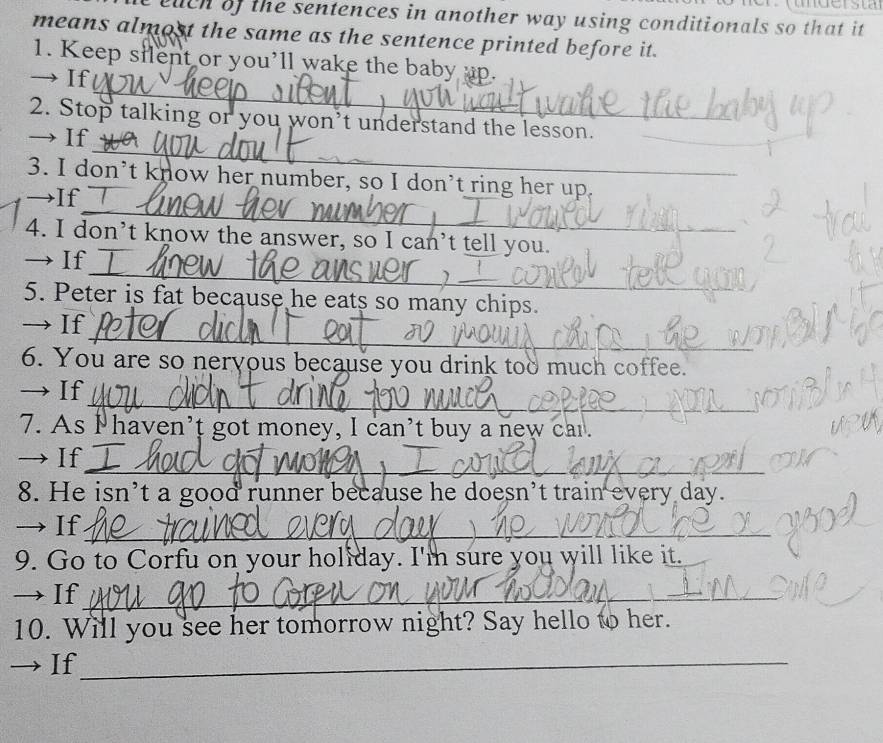 each of the sentences in another way using conditionals so that it
means almost the same as the sentence printed before it.
1. Keep silent or you'll wake the baby up.
→ If you keep silent, you won't wake the baby up
2. Stop talking or you won't understand the lesson.
→ If you don't
3. I don't know her number, so I don't ring her up.
→ If I knew her number, I would ring
4. I don't know the answer, so I can't tell you.
→ If I knew the answer, I could tell you
5. Peter is fat because he eats so many chips.
→ If Peter didn't eat so many chips, he
6. You are so nervous because you drink too much coffee.
→ If you didn't drink too much coffee, you
7. As I haven't got money, I can't buy a new car.
→ If I had got money, I could buy a car
8. He isn't a good runner because he doesn't train every day.
→ If he trained every day, he would be a good
9. Go to Corfu on your holiday. I'm sure you will like it.
→ If you go to Corfu on your holiday, I'm sure
10. Will you see her tomorrow night? Say hello to her.
→ If